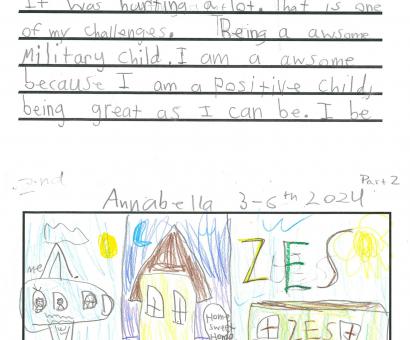 It was hurting a lot. That is one
of my challenges. Being a awsome
Military child. I am a awsome
because I am a positive child,
being great as I can be. I be
Part 2
Annabella 3-6th 2024
ZES
me
Home
sweet
Home
ZES